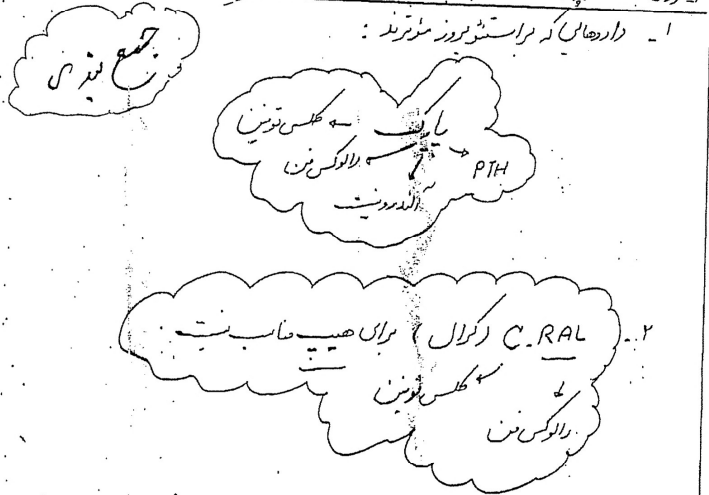 جمع بندی
۱- داروهایی که بر استئوپروز مؤثرند :
پاک ← کلسی تونین
← رالوکسی فن
PTH
آلندرونیت
۲- C.RAL (کرال) برای هیپ مناسب نیست
← کلسی تونین
رالوکسی فن